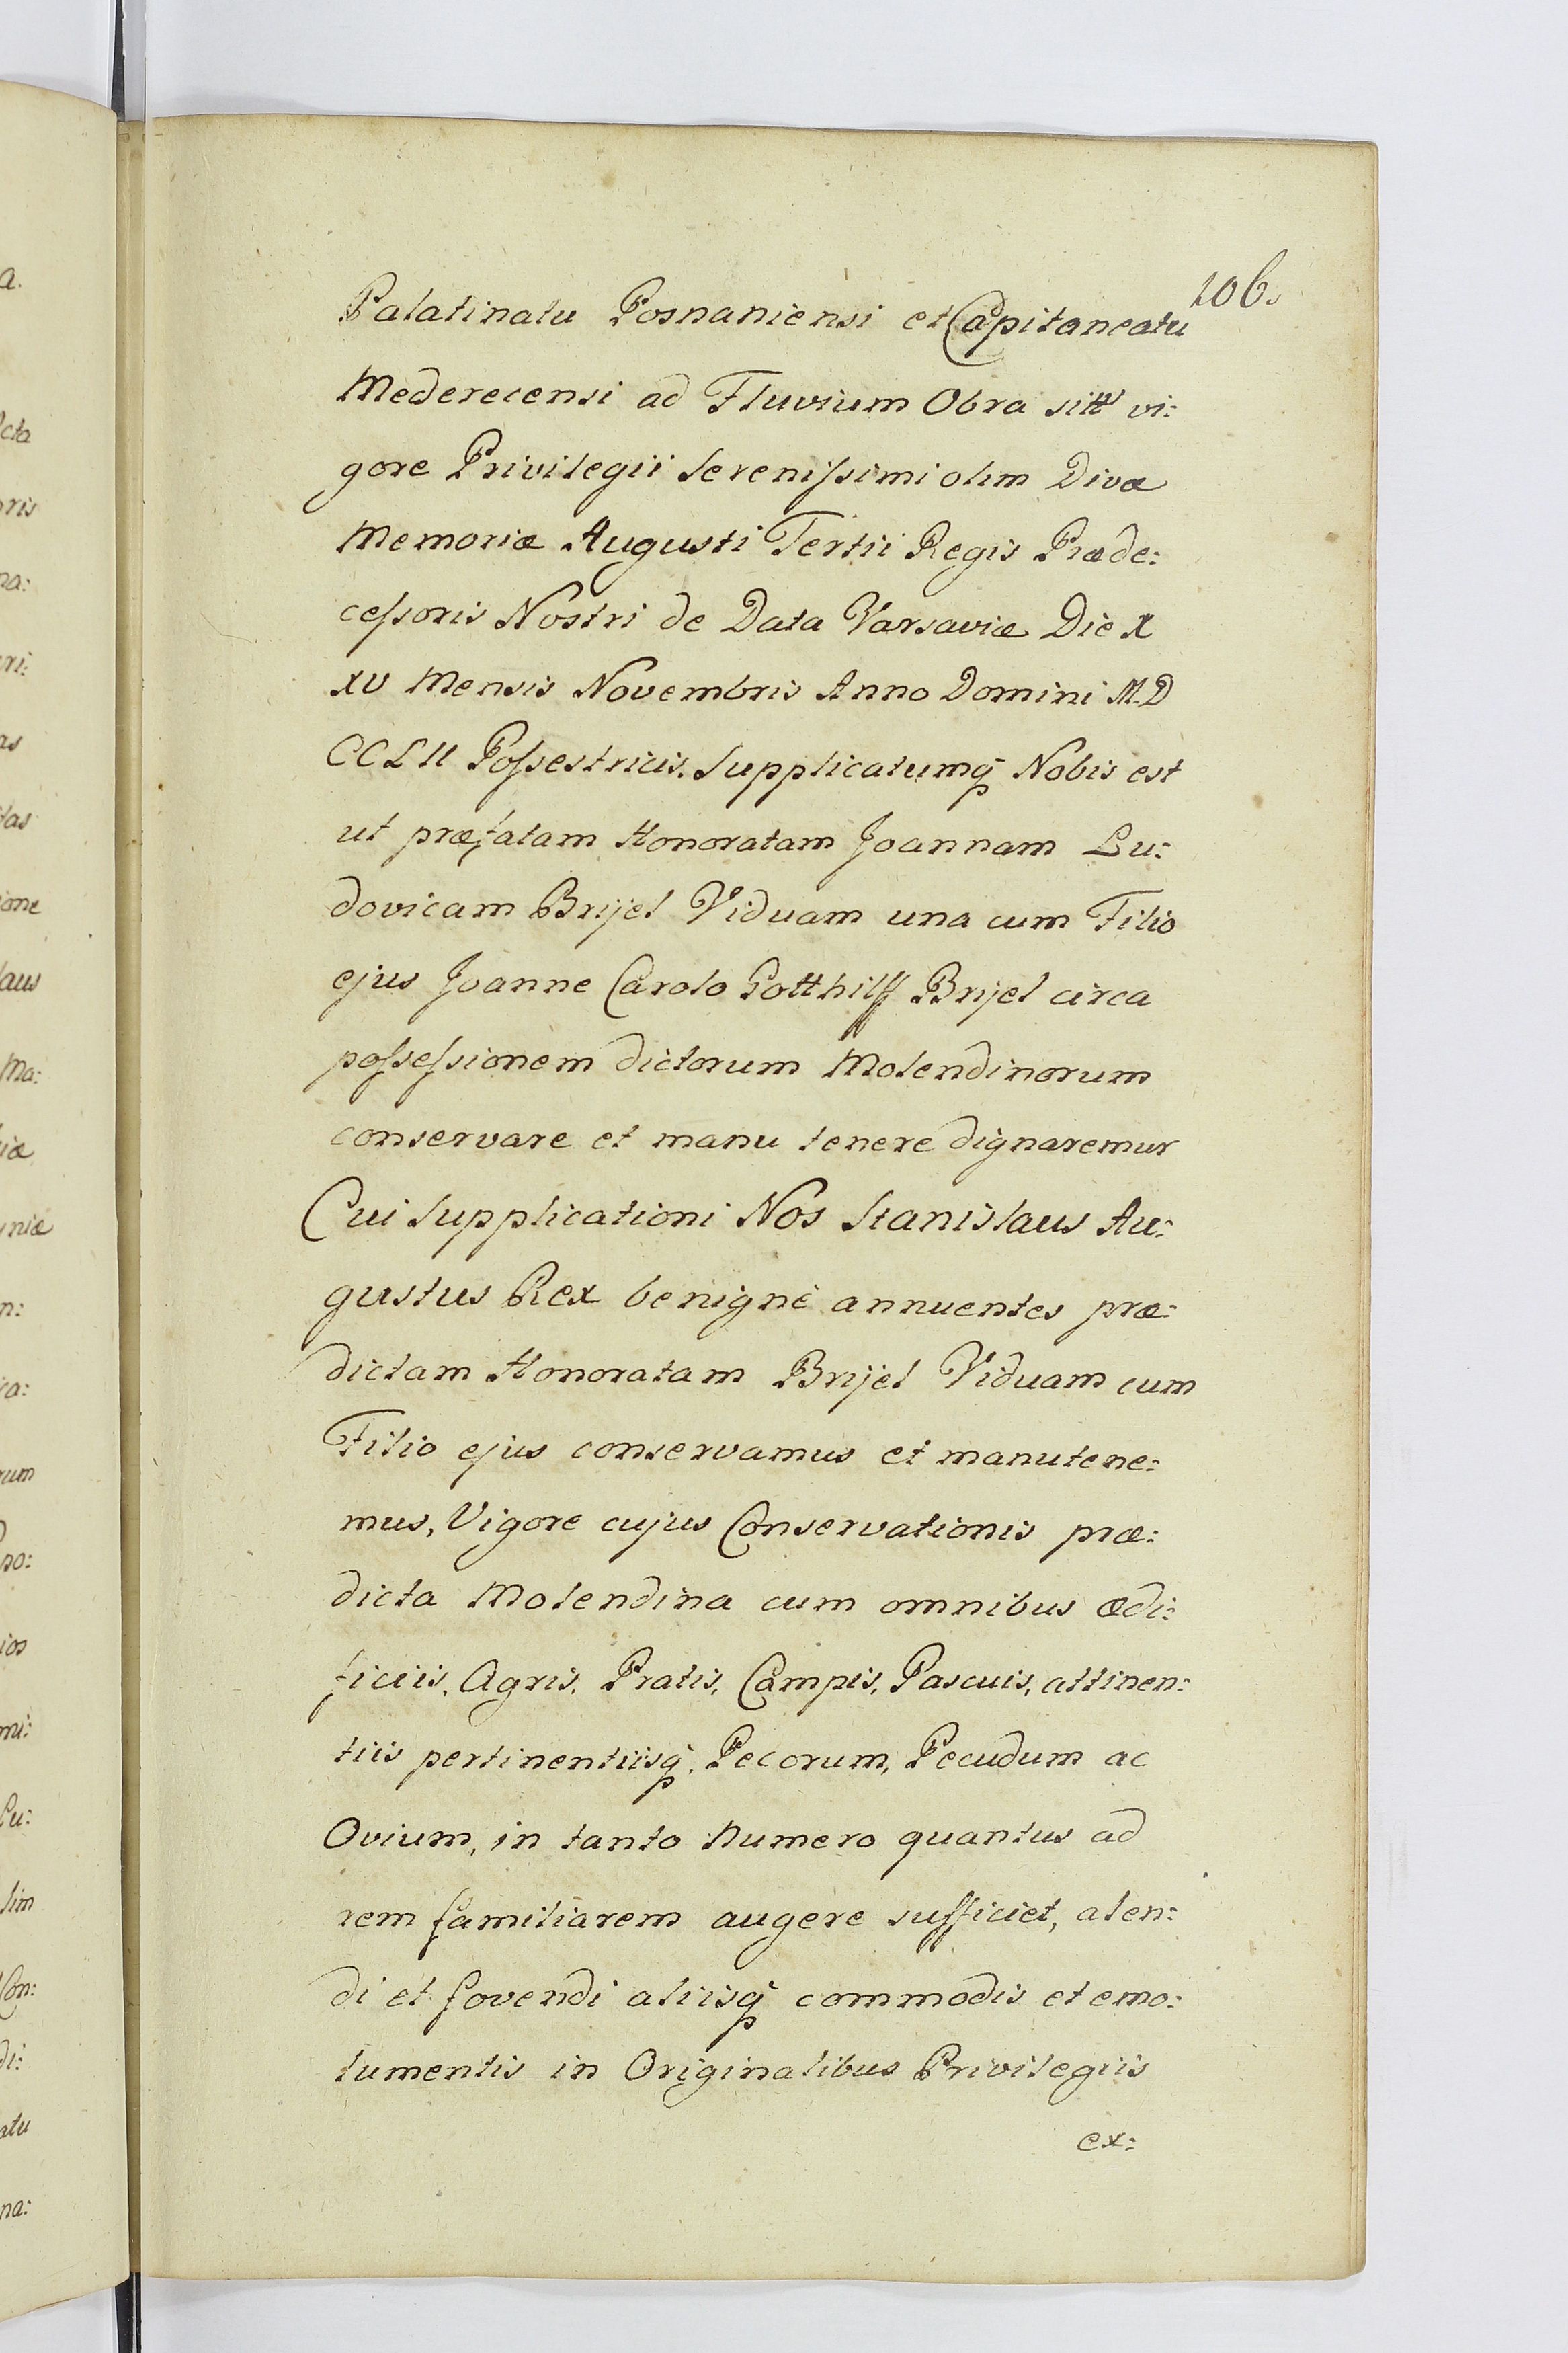 106.
Palatinatu Posnaniensi et Capitaneatu
Mederecensi ad Fluvium Obra vi:
gore Privilegii Serenissimi olim Divæ
Memoriæ Augusti Tertii Regis Præde:
cessoris Nostri de Data Varsaviæ Die X
XV Mensis Novembris Anno Domini M.D
CCLII Possestricis. Supplicatumq Nobis est
ut præfatam Honoratam Joannam Lu:
dovicam Brijel Viduam una cum Filio
ejus Joanne Carolo Gotthilff Brijel circa
possessionem dictorum Molendinorum
conservare et manu tenere dignaremur
Cui Supplicationi Nos Stanislaus Au:
gustus Rex benignè annuentes præ:
dictam Honoratam Brijel Viduam cum
Filio ejus conservamus et manutene:
mus, Vigore cujus Conservationis præ:
dicta Molendina cum omnibus ædi:
ficiis, Agris, Pratis, Campis, Pascuis, attinen:
tiis pertinentiisq, Pecorum, Pecudum ac
Ovium, in tanto numero quantus ad
rem familiarem augere sufficiet, alen:
di et fovendi aliisq commodis et emo:
lumentis in Originalibus Privilegiis
ex: